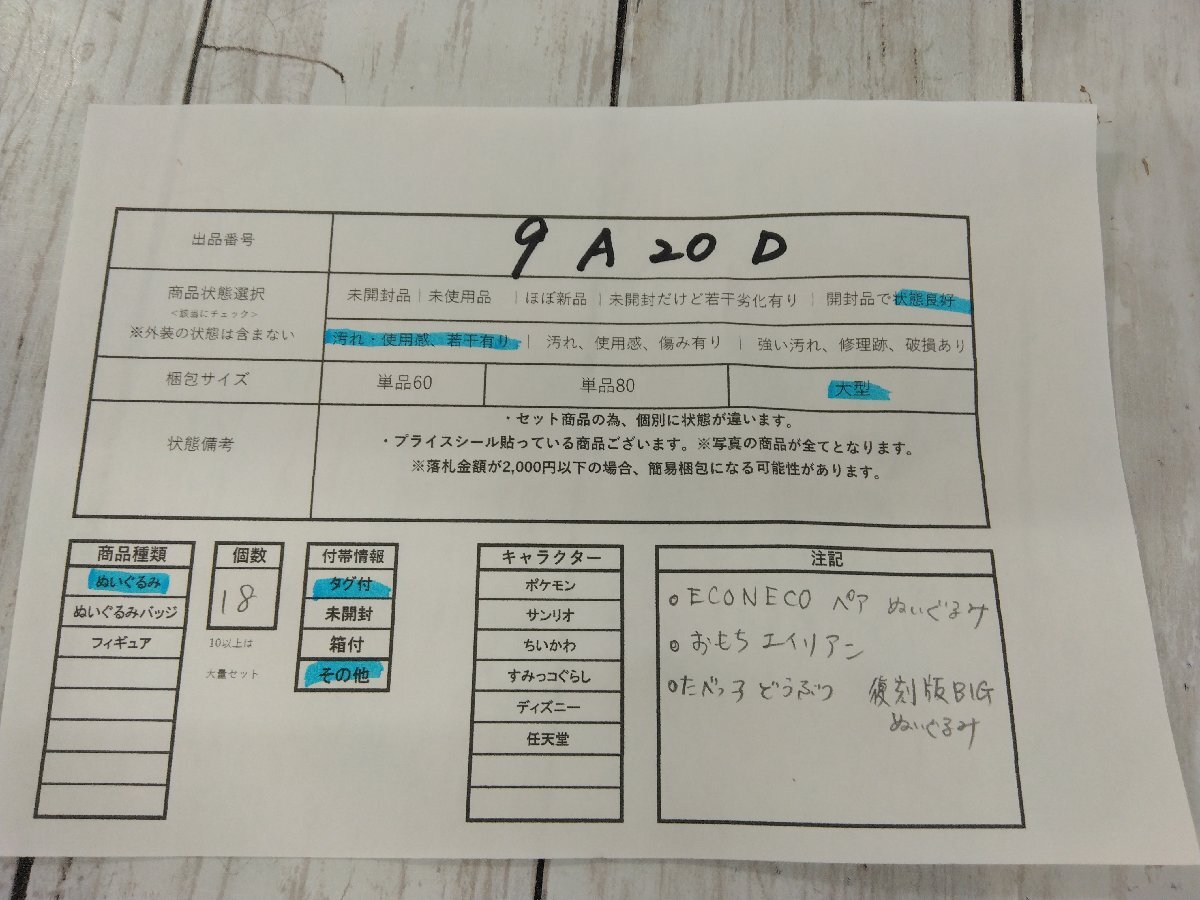 出品番号
9 A 20 D
商品状態選択
<該当にチェック>
※外装の状態は含まない
未開封品 | 未使用品 | ほぼ新品 | 未開封だけど若干劣化有り | 開封品で状態良好
汚れ・使用感、若干有り | 汚れ、使用感、傷み有り | 強い汚れ、修理跡、破損あり
梱包サイズ
単品60
単品80
大型
状態備考
・セット商品の為、個別に状態が違います。
・プライスシール貼っている商品ございます。※写真の商品が全てとなります。
※落札金額が2,000円以下の場合、簡易梱包になる可能性があります。
商品種類
ぬいぐるみ
ぬいぐるみバッジ
フィギュア
個数
18
10以上は
大量セット
付帯情報
タグ付
未開封
箱付
その他
キャラクター
ポケモン
サンリオ
ちいかわ
すみっコぐらし
ディズニー
任天堂
注記
○ECONECO ペア ぬいぐるみ
○おもちエイリアン
○たべっ子どうぶつ 復刻版BIG
ぬいぐるみ